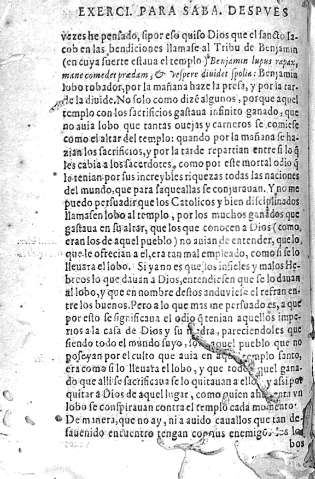 EXERCI. PARA SABA. DESPVES
vezes he pensado, si por eso quiso Dios que el sancto Ia-
cob en las bendiciones llamase al Tribu de Benjamin
(en cuya suerte estaua el templo) Benjamin lupus rapax,
mane comedet prædam, & vespere diuidet spolia: Benjamin
lobo robador, por la mañana haze la presa, y por la tar-
de la diuide. No solo como dizē algunos, porque aquel
templo con los sacrificios gastaua infinito ganado, que
no auia lobo que tantas ouejas y carneros se comiese
como el altar del templo: quando por la mañana se ha-
zian los sacrificios, y por la tarde repartian entre si lo q̄
les cabia a los sacerdotes, como por este mortal odio q̄
le tenian por sus increybles riquezas todas las naciones
del mundo, que para saqueallas se conjurauan. Y no me
puedo persuadir que los Catolicos y bien disciplinados
llamasen lobo al templo, por los muchos ganados que
gastaua en su altar, que los que conocen a Dios (como
eran los de aquel pueblo) no auian de entender, que lo
que le ofrecian a el, era tan mal empleado, como si se lo
lleuara el lobo. Si ya no es que los infieles y malos He-
breos lo que dauan a Dios, entendiesen que se lo dauan
al lobo, y que en nombre destos anduuiese el refran en-
tre los buenos. Pero a lo que mas me persuado es, a que
por esto se significaua el odio q̄ tenian aquellos impe-
rios a la casa de Dios y su piedra, pareciendoles que
siendo todo el mundo suyo, solo aquel pueblo que no
poseyan por el culto que auia en aquel templo santo,
era como si lo lleuara el lobo, y que todo el gana-
do que alli se sacrificaua se lo quitauan a ellos, y asi por
quitar a Dios de aquel lugar, como quien ahuyenta vn
lobo se conspirauan contra el templo cada momento.
De manera, que no ay, ni a auido cauallos que tan de-
sauenido encuentro tengan con sus enemigos los lo
bos